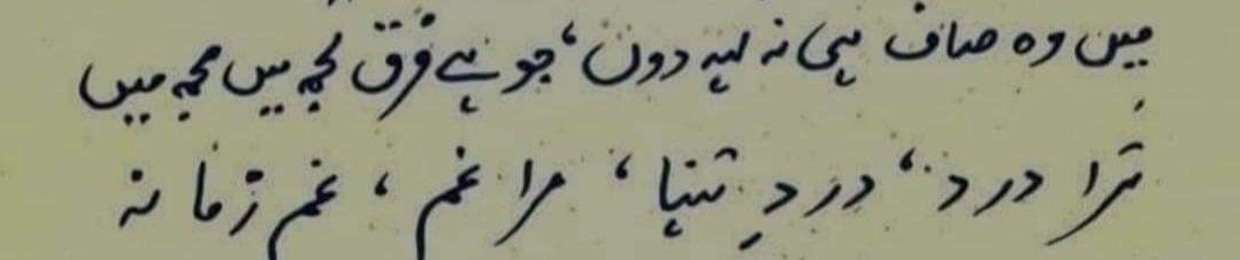 میں وہ صاف ہی نہ کہہ دوں، جو ہے فرق تجھ میں مجھ میں
ترا درد، دردِ تنہا، مرا غم، غمِ زمانہ